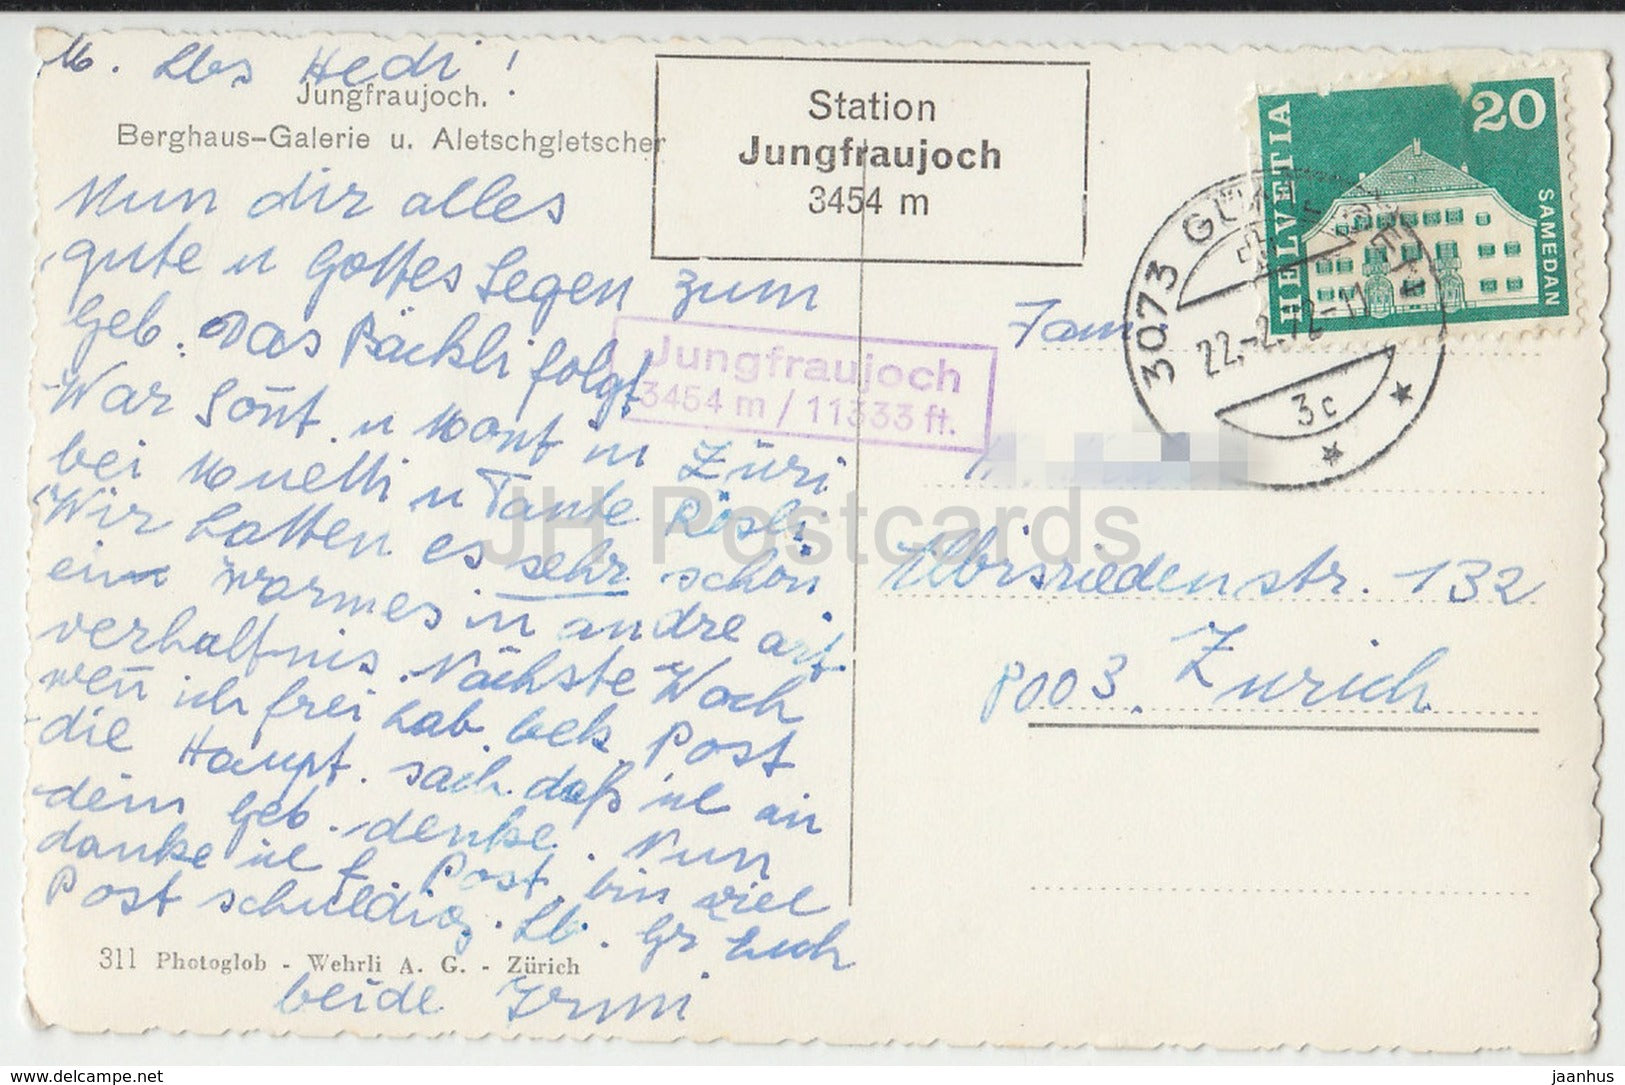 M. Lbs Hedi!
Jungfraujoch.
Berghaus-Galerie u. Aletschgletscher
Nun dir alles
gute u Gottes Segen zum
Geb. Das Päckli folgt
War Sont. u Mont in Züri
bei Muetti u Tante Rösli.
Wir hatten es sehr schön
ein warmes in andre art
verhältnis. Nächste Woch
wen̄ ich frei hab. bek. Post
die Haupt. sach. daß ich an
dein geb. denke. Nun
danke ich f. Post. bin viel
Post schuldig. Lb. Gr Euch
311 Photoglob - Wehrli A. G. - Zürich
beide Irmi
Station
Jungfraujoch
3454 m
Jungfraujoch
3454 m / 11333 ft.
HELVETIA
20
SAMEDAN
3073
22.-2.72-11
3c
Fam
Albisriedenstr. 132
8003. Zürich
JH Postcards
delcampe.net
jaanhus